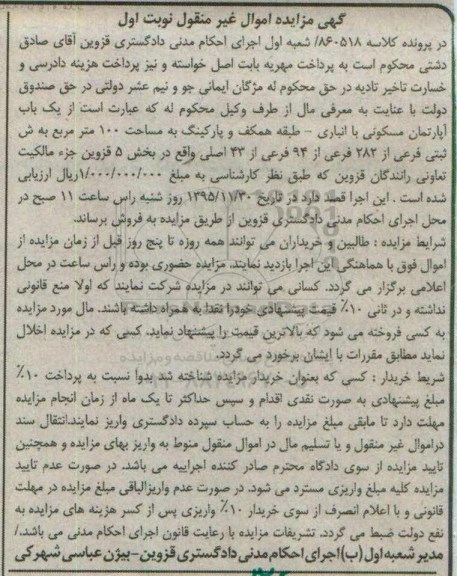 گهی مزایده اموال غیر منقول نوبت اول
در پرونده کلاسه ۸۶۰۵۱۸/ شعبه اول اجرای احکام مدنی دادگستری قزوین آقای صادق
دشتی محکوم است به پرداخت مهریه بابت اصل خواسته و نیز پرداخت هزینه دادرسی و
خسارت تاخیر تادیه در حق محکوم له مژگان ایمانی جو و نیم عشر دولتی در حق صندوق
دولت با عنایت به معرفی مال از طرف وکیل محکوم له که عبارت است از یک باب
آپارتمان مسکونی با انباری - طبقه همکف و پارکینگ به مساحت ۱۰۰ متر مربع به ش
ثبتی فرعی از ۲۸۲ فرعی از ۹۴ فرعی از ۴۳ اصلی واقع در بخش ۵ قزوین جزء مالکیت
تعاونی رانندگان قزوین که طبق نظر کارشناسی به مبلغ ۱/۰۰۰/۰۰۰/۰۰۰ریال ارزیابی
شده است . این اجرا قصد دارد در تاریخ ۱۳۹۵/۱۱/۳۰ روز شنبه راس ساعت ۱۱ صبح در
محل اجرای احکام مدنی دادگستری قزوین از طریق مزایده به فروش برساند.
شرایط مزایده : طالبین و خریداران می توانند همه روزه تا پنج روز قبل از زمان مزایده از
اموال فوق با هماهنگی این اجرا بازدید نمایند. مزایده حضوری بوده و راس ساعت در محل
اعلامی برگزار می گردد. کسانی می توانند در مزایده شرکت نمایند که اولا منع قانونی
نداشته و در ثانی ۱۰٪ قیمت پیشنهادی خودرا نقدا به همراه داشته باشند. مال مورد مزایده
به کسی فروخته می شود که بالاترین قیمت را پیشنهاد نماید. کسی که در مزایده اخلال
نماید مطابق مقررات با ایشان برخورد می گردد.
شریط خریدار : کسی که بعنوان خریدار مزایده شناخته شد بدوا نسبت به پرداخت ۱۰٪
مبلغ پیشنهادی به صورت نقدی اقدام و سپس حداکثر تا یک ماه از زمان انجام مزایده
مهلت دارد تا مابقی مبلغ مزایده را به حساب سپرده دادگستری واریز نمایند.انتقال سند
دراموال غیر منقول و یا تسلیم مال در اموال منقول منوط به واریز بهای مزایده و همچنین
تایید مزایده از سوی دادگاه محترم صادر کننده اجراییه می باشد. در صورت عدم تایید
مزایده کلیه مبلغ واریزی مسترد می شود. در صورت عدم واریزالباقی مبلغ مزایده در مهلت
قانونی و یا اعلام انصرف از سوی خریدار ۱۰٪ واریزی پس از کسر هزینه های مزایده به
نفع دولت ضبط می گردد. تشریفات مزایده با رعایت قانون اجرای احکام مدنی می باشد./
مدیر شعبه اول (ب) اجرای احکام مدنی دادگستری قزوین - بیژن عباسی شهرکی